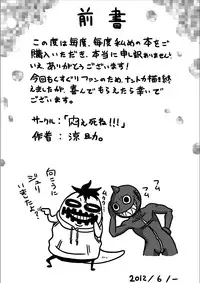 前書
この度は毎度、毎度私めの本をご
購入いただき、本当に申し訳ありませんといえ、ありがとうございます!
今回もくすぐりファンのため、ナントカ描き終
えましたが、喜んでもらえたら幸いで
ございます。
サークル:「悶え死ね!!!」
作者:涼旦力。
向こうに
ジュリ
いましたよ?
フム
フム
2012/6/-